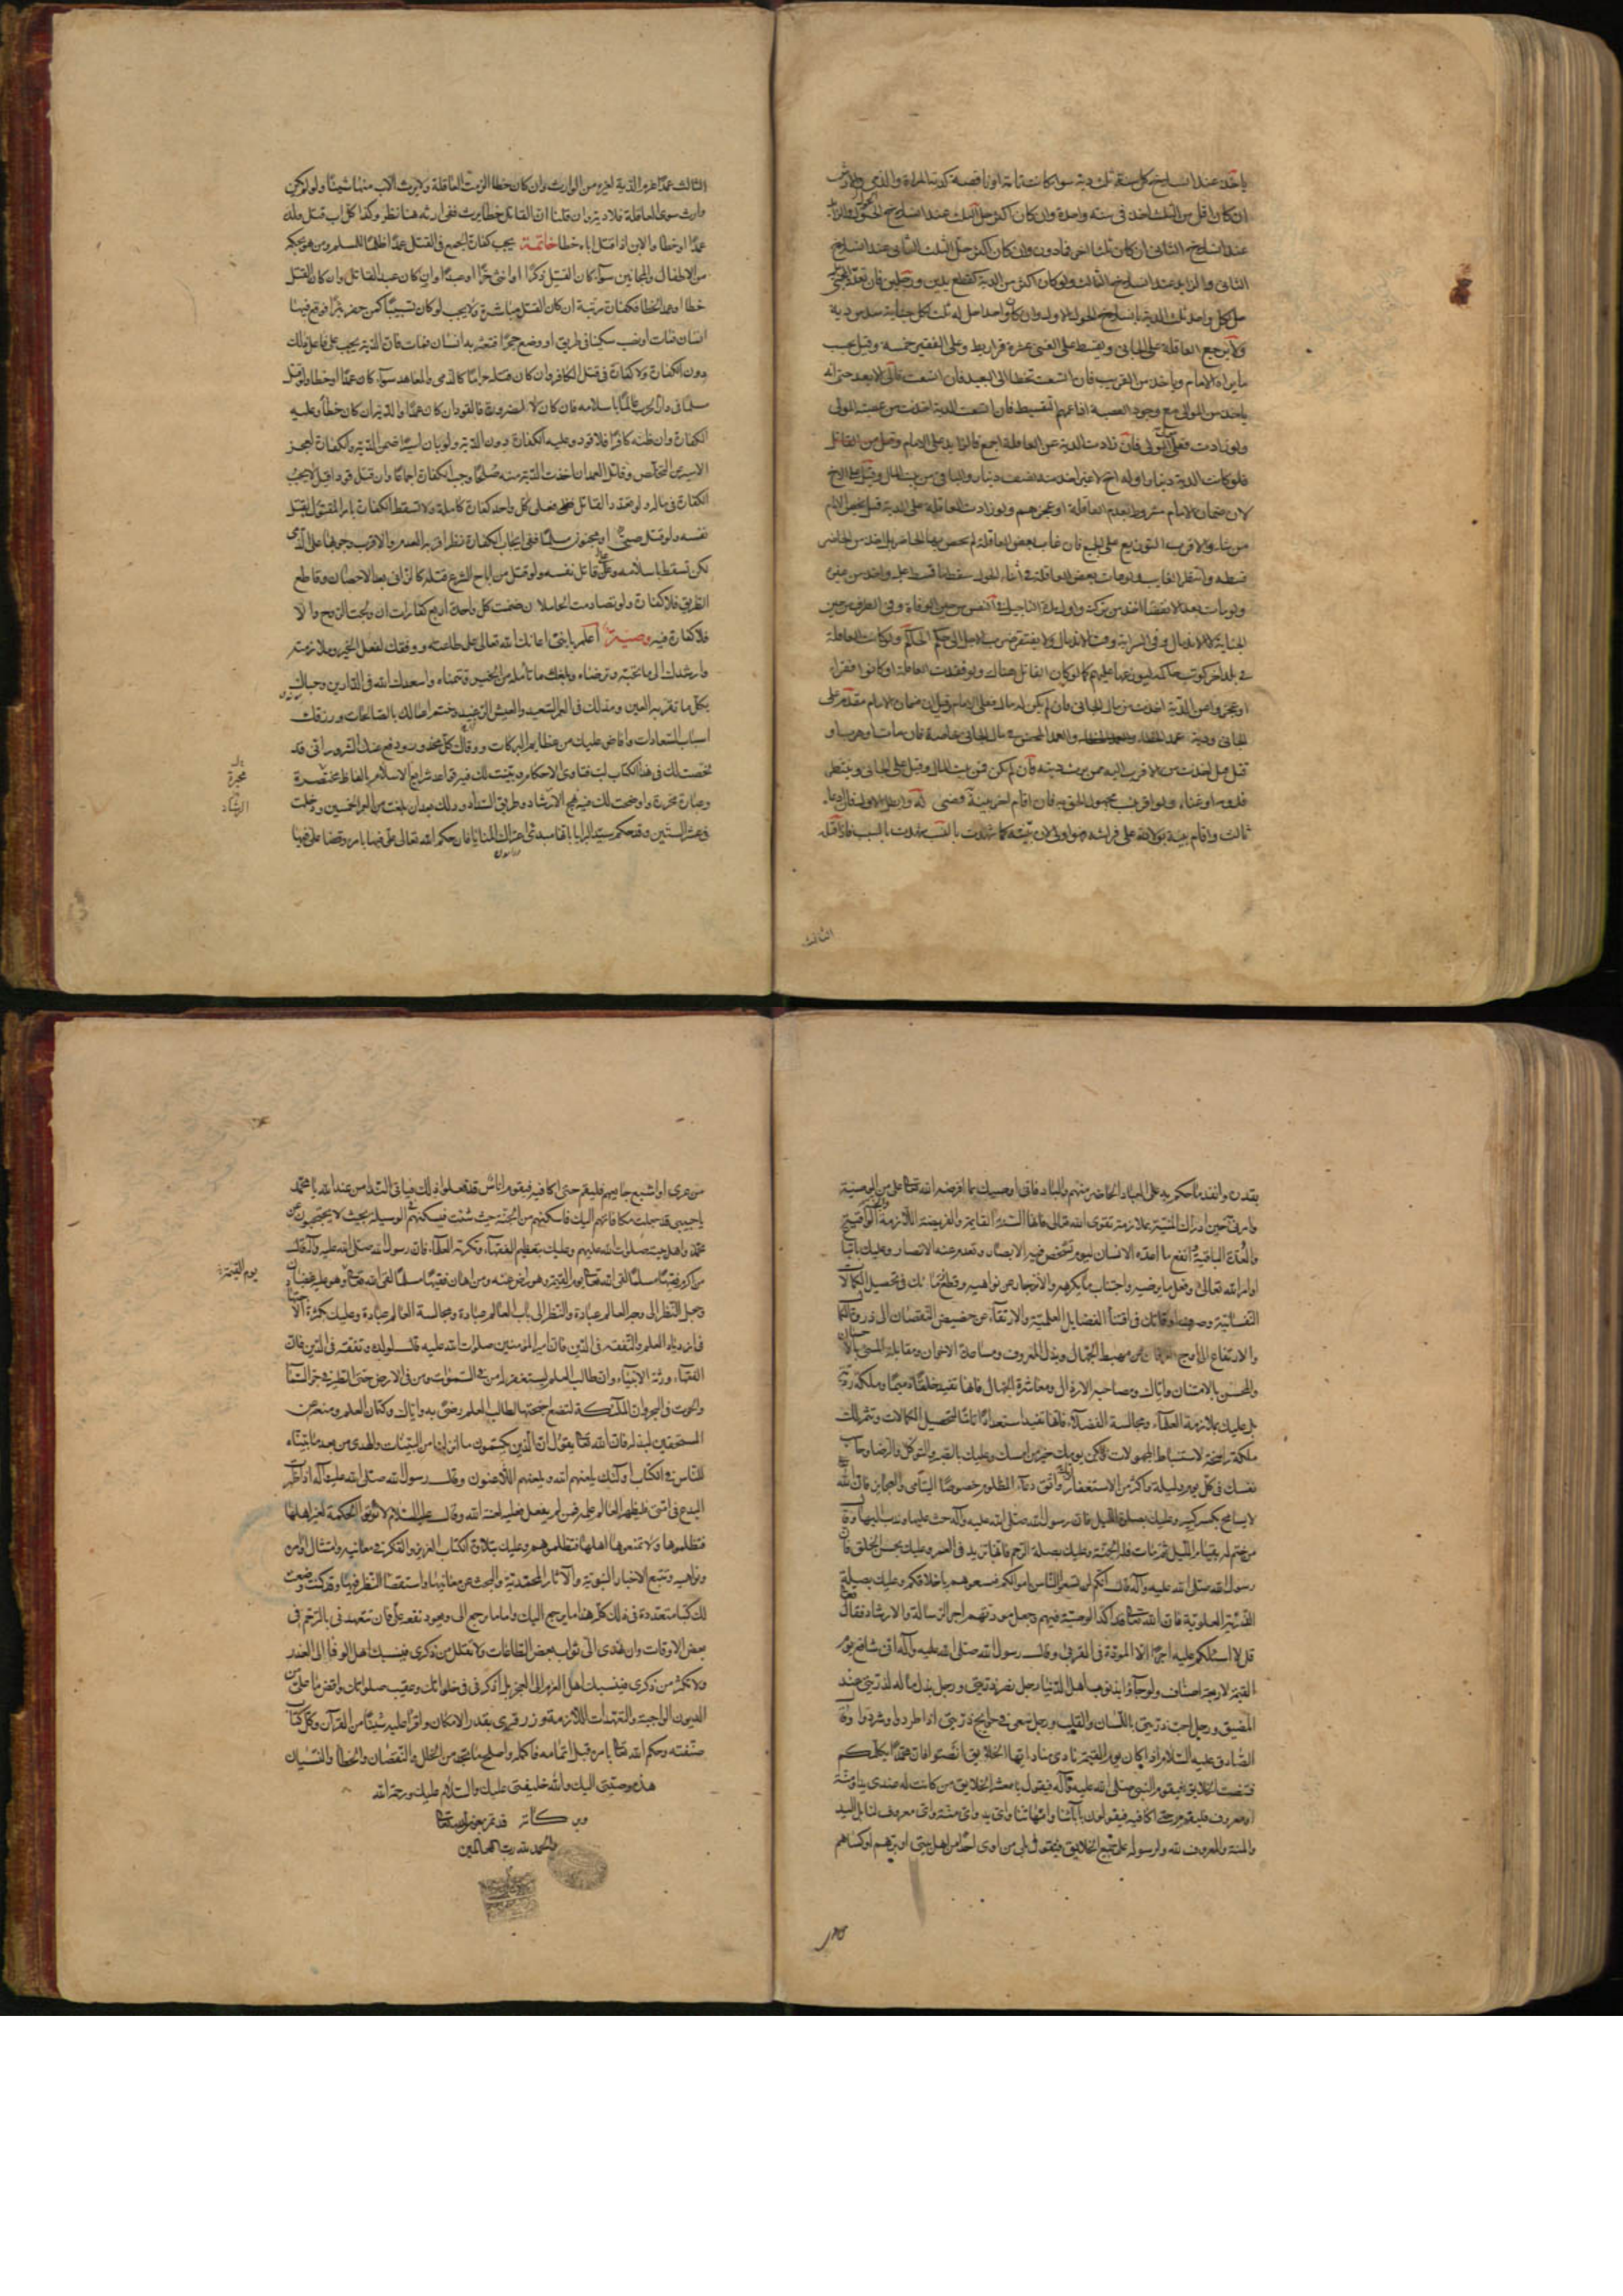 ياخذ عند انسلاخ كل سنة ثلث دية سواء كانت تامة او ناقصة كدية المراة والذمي والارش
ان كان اقل من الثلث اخذ في سنة واحدة وان كان اكثر حل الثلث عند انسلاخ الحول والزايد
عند انسلاخ الثاني ان كان ثلثا اخر فما دون وان كان اكثر حل الثلث الثاني عند انسلاخ
الثاني والزايد عند انسلاخ الثالث ولو كان اكثر من الدية كقطع يدين ورجلين فان تعدد المجني
حل لكل واحد ثلث الدية بانسلاخ الحول الاول وان كان واحدا حل له ثلث لكل جناية سدس دية
ولا يرجع العاقلة على الجاني ويقسط على الغني عشرة قراريط وعلى الفقير خمسة وقيل بحسب
ما يراه الامام وياخذ من القريب فان اتسعت تخطا الى البعيد فان اتسعت فالى الابعد حتى انه
ياخذ من الموالي مع وجود العصبة اذا عمهم التقسيط فان اتسعت الدية اخذت من عصبة المولى
ولو زادت فعلى مولى المولى فان زادت الدية عن العاقلة اجمع فالزايد على الامام وقيل من القاتل
فلو كانت الدية دينارا وله اخ لا غير اخذ منه نصف دينار والباقي من بيت المال وقيل على الاخ
لان ضمان الامام مشروط بعدم العاقلة او عجزهم ولو زادت العاقلة على الدية قيل يخص الامام
من شاء والاقرب التوزيع على الجميع فان غاب بعض العاقلة لم يخص بها الحاضر بل اخذ من الحاضر
قسطه وانتظر الغايب ولو مات بعض العاقلة في اثناء الحول سقط ما قسط عليه واخذ من غيره
ولو مات بعد الانقضا اخذ من تركته واول مدة التاجيل في النفس من حين الوفاة وفي الطرف من حين
الجناية لا الاندمال وفي السراية وقت الاندمال ولا يفتقر ضرب الاجل الى حكم الحاكم ولو كانت العاقلة
في بلد اخر كوتب حاكمه ليوزعها عليهم كما لو كان القاتل هناك ولو فقدت العاقلة او كانوا فقراء
او عجزوا عن الدية اخذت من مال الجاني فان لم يكن له مال فعلى الامام وقيل ان ضمان الامام مقدم على
الجاني ودية عمد الخطاء والعمد المحض في مال الجاني خاصة فان مات او هرب او
قتل قيل اخذت من الاقرب اليه ممن يرث ديته فان لم يكن فمن بيت المال وقيل على الجاني وينتظر
قدومه او غناه ولو اقر بنسب مجهول الحق به فان اقام اخر بينة قضي له وابطل الاول فان ادعاه
ثالث واقام بينة بولادته على فراشه فهو اولى لان بينته كما شهدت بالنسب شهدت بالسبب فاذا قتله
الثالث
الثالث عمدا غرم الدية لغيره من الوارث وان كان خطا الزمت العاقلة ولا يرث الاب منها شيئا ولو لم يكن
وارث سوى العاقلة فلا دية وان قلنا ان القاتل خطا يرث ففي ارثه هنا نظر وكذا كل اب قتل ولده
عمدا او خطا والابن اذا قتل اباه خطا خاتمة يجب كفارة الجمع في القتل عمدا ظلما للمسلم ومن هو بحكمه
من الاطفال والمجانين سواء كان القتيل ذكرا او انثى حرا او عبدا وان كان عبد القاتل وان كان القتل
خطا او عمد الخطا فكفارة مرتبة ان كان القتل مباشرة ولا يجب لو كان تسبيبا كمن حفر بئرا فوقع فيها
انسان فمات او نصب سكينا في طريق او وضع حجرا فتعثر به انسان فمات فان الدية يجب على فاعل ذلك
دون الكفارة ولا كفارة في قتل الكافر وان كان قتله حراما كالذمي والمعاهد سواء كان عمدا او خطا ولو قتل
مسلما في دار الحرب عالما باسلامه فان كان لا لضرورة فالقود ان كان عمدا والدية ان كان خطأ وعليه
الكفارة وان ظنه كافرا فلا قود وعليه الكفارة دون الدية ولو بان اسيرا ضمن الدية والكفارة لعجز
الاسير عن التخلص وقاتل العمد ان اخذت الدية منه صلحا وجبت الكفارة اجماعا وان قتل قودا قيل لا يجب
الكفارة في ماله ولو تعدد القاتل فعلى كل واحد كفارة كاملة ولا تسقط الكفارة بامر المقتول بقتل
نفسه ولو قتل صبي او مجنون مسلما ففي ايجاب الكفارة نظر اقربه العدم والاقرب وجوبها على الذمي
لكن تسقط باسلامه وعلى قاتل نفسه ولو قتل من اباح الشرع قتله كالزاني بعد الاحصان وقاطع
الطريق فلا كفارة ولو تصادمت الحاملان ضمنت كل واحدة اربع كفارات ان ولجت الروح والا
فلا كفارة فيه وصية اعلم يا بني اعانك الله تعالى على طاعته ووفقك لفعل الخير وملازمته
وارشدك الى ما يحبه ويرضاه وبلغك ما تأمله من الخير وتتمناه واسعدك الله في الدارين وحباك
بكل ما تقر به العين ومد لك في العمر السعيد والعيش الرغيد وختم اعمالك بالصالحات ورزقك
اسباب السعادات وافاض عليك من عظايم البركات ووقاك كل محذور ودفع عنك الشرور اني قد
لخصت لك في هذا الكتاب لب فتاوى الاحكام وبينت لك فيه قواعد شرايع الاسلام بالفاظ مختصرة
وعبارة محررة واوضحت لك فيه نهج الارشاد وطريق السداد وذلك بعد ان بلغت من العمر الخمسين ودخلت
في عشر الستين وقد حكم سيد البرايا بانها مبدء اعتراك المنايا فان حكم الله تعالى علي فيها بامره وقضا علي فيها
بقدره وانفذ ما حكم به على العباد الحاضر منهم والباد فاني اوصيك بما افرضه الله تعالى علي من الوصية
وامرني حين ادراك المنية بملازمة تقوى الله تعالى فانها السنة القايمة والفريضة اللازمة والجنة الواقية
والعدة الباقية وانفع ما اعده الانسان ليوم تشخص فيه الابصار وتعدم عنه الانصار وعليك باتباع
اوامر الله تعالى وفعل ما يرضيه واجتناب ما يكرهه والانزجار عن نواهيه وقطع زمانك في تحصيل الكمالات
النفسانية وصرف اوقاتك في اقتناء الفضايل العلمية والارتقاء عن حضيض النقصان الى ذروة الكمال
والارتفاع الى اوج العرفان عن مهبط الجهال وبذل المعروف ومساعدة الاخوان ومقابلة المسي بالاحسان
والمحسن بالامتنان واياك ومصاحبة الارذال ومعاشرة الجهال فانها تفيد خلقا ذميما وملكة ردية
بل عليك بملازمة العلماء ومجالسة الفضلاء فانها تفيد استعدادا تاما لتحصيل الكمالات وتثمر لك
ملكة راسخة لاستنباط المجهولات وليكن يومك خير من امسك وعليك بالصبر والتوكل والرضا وحاسب
نفسك في كل يوم وليلة واكثر من الاستغفار لربك واتق دعاء المظلوم خصوصا اليتامى والعجايز فان الله
لا يسامح بكسر كسير وعليك بصلوة الليل فان رسول الله صلى الله عليه وآله حث عليها وندب اليها وقال
من ختم له بقيام الليل ثم مات فله الجنة وعليك بصلة الرحم فانها تزيد في العمر وعليك بحسن الخلق فان
رسول الله صلى الله عليه وآله قال انكم لن تسعوا الناس باموالكم فسعوهم باخلاقكم وعليك بصلة
الذرية العلوية فان الله تعالى قد اكد الوصية فيهم وجعل مودتهم اجر الرسالة والارشاد فقال تعالى
قل لا اسئلكم عليه اجرا الا المودة في القربى وقال رسول الله صلى الله عليه وآله اني شافع يوم
القيمة لاربعة اصناف ولو جآؤا بذنوب اهل الدنيا رجل نصر ذريتي ورجل بذل ماله لذريتي عند
المضيق ورجل احب ذريتي باللسان والقلب ورجل سعى في حوايج ذريتي اذا طردوا وشردوا وقال
الصادق عليه السلام اذا كان يوم القيمة نادى مناد ايها الخلايق انصتوا فان محمدا يكلمكم
فتنصت الخلايق فيقوم النبي صلى الله عليه وآله فيقول يا معشر الخلايق من كانت له عندي يد او منة
او معروف فليقم حتى اكافيه فيقولون بآبائنا وامهاتنا واي يد واي منة واي معروف لنا بل اليد
والمنة والمعروف لله ولرسوله على جميع الخلايق فيقول بلى من اوى احدا من اهل بيتي او برهم او كساهم
من عري او اشبع جايعهم فليقم حتى اكافيه فيقوم اناس قد فعلوا ذلك فياتي الندا من عند الله يا محمد
يا حبيبي قد جعلت مكافاتهم اليك فاسكنهم من الجنة حيث شئت فيسكنهم الوسيلة بحيث لا يحجبون عن
محمد واهل بيته صلوات الله عليهم وعليك بتعظيم الفقهاء وتكرمة العلماء فان رسول الله صلى الله عليه وآله قال
من اكرم فقيها مسلما لقى الله تعالى يوم القيمة وهو راض عنه ومن اهان فقيها مسلما لقى الله تعالى وهو عليه غضبان
وجعل النظر الى وجه العالم عبادة والنظر الى باب العالم عبادة ومجالسة العالم عبادة وعليك بكثرة الاجتهاد
في ازدياد العلم والتفقه في الدين فان امير المؤمنين صلوات الله عليه قال لولده وتفقه في الدين فان
الفقهاء ورثة الانبياء وان طالب العلم ليستغفر له من في السموات ومن في الارض حتى الطير في جو السماء
والحوت في البحر وان الملائكة لتضع اجنحتها لطالب العلم رضى به واياك وكتمان العلم ومنعه عن
المستحقين لبذله فان الله تعالى يقول ان الذين يكتمون ما انزلنا من البينات والهدى من بعد ما بيناه
للناس في الكتاب اولئك يلعنهم الله ويلعنهم اللاعنون وقال رسول الله صلى الله عليه وآله اذا ظهر
البدع في امتي فليظهر العالم علمه فمن لم يفعل فعليه لعنة الله وقال عليه السلام لا تؤتوا الحكمة لغير اهلها
فتظلموها ولا تمنعوها اهلها فتظلموهم وعليك بتلاوة الكتاب العزيز والتفكر في معانيه وامتثال اوامره
ونواهيه وتتبع الاخبار النبوية والآثار المحمدية والبحث عن معانيها واستقصا النظر فيها وقد كنت وضعت
لك كتبا متعددة في ذلك كله هذا ما يرجع اليك واما ما يرجع الي ويعود نفعه علي فان تتعهدني بالترحم في
بعض الاوقات وان تهدي الي ثواب بعض الطاعات ولا تقلل من ذكري فينسبك اهل الوفا الى الغدر
ولا تكثر من ذكري فينسبك اهل العزم الى العجز بل اذكرني في خلواتك وعقيب صلواتك واقض ما علي من
الديون الواجبة والتعهدات اللازمة وزر قبري بقدر الامكان واقرا عليه شيئا من القرآن وكل كتاب
صنفته وحكم الله تعالى بامره قبل اتمامه فاكمله واصلح ما تجده من الخلل والنقصان والخطأ والنسيان
هذه وصيتي اليك والله خليفتي عليك والسلام عليك ورحمة الله
وبركاته قد تم بعون الله تعالى
والحمد لله رب العالمين
يوم القيمة